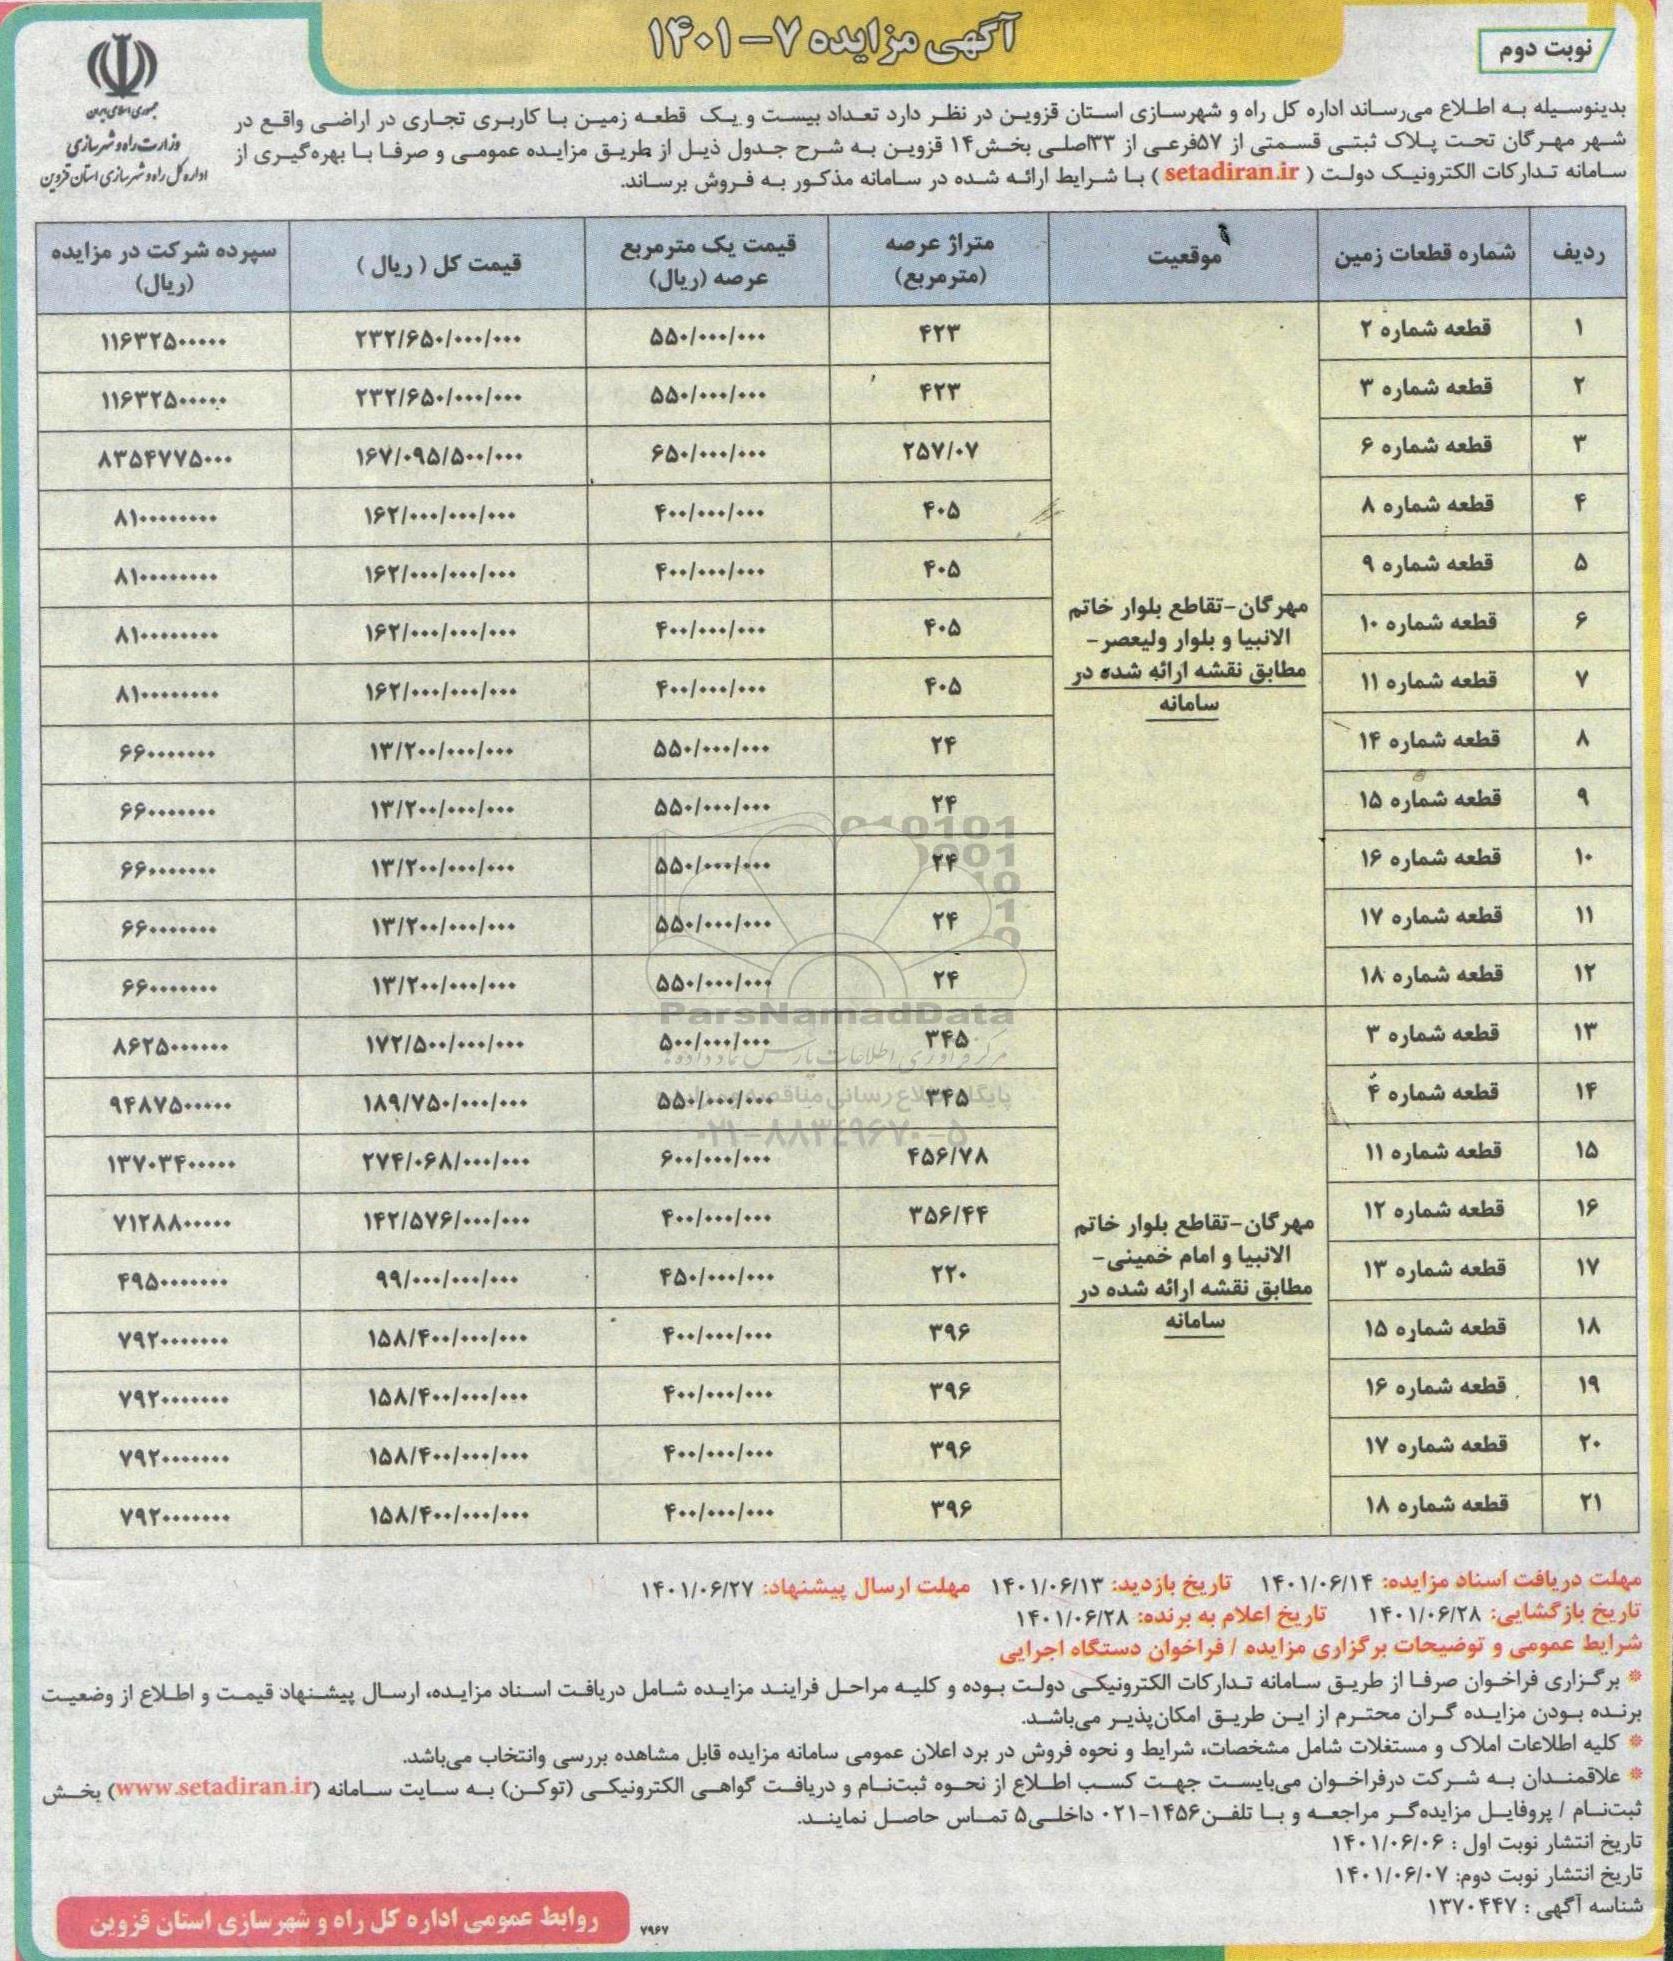 آگهی مزایده ۷-۱۴۰۱
نوبت دوم
جمهوری اسلامی ایران
وزارت راه و شهرسازی
اداره کل راه و شهرسازی استان قزوین
بدینوسیله به اطلاع می‌رساند اداره کل راه و شهرسازی استان قزوین در نظر دارد تعداد بیست و یک قطعه زمین با کاربری تجاری در اراضی واقع در
شهر مهرگان تحت پلاک ثبتی قسمتی از ۵۷فرعی از ۳۳اصلی بخش۱۴ قزوین به شرح جدول ذیل از طریق مزایده عمومی و صرفا با بهره‌گیری از
سامانه تدارکات الکترونیک دولت ( setadiran.ir ) با شرایط ارائه شده در سامانه مذکور به فروش برساند.
ردیف شماره قطعات زمین موقعیت متراژ عرصه (مترمربع) قیمت یک مترمربع عرصه (ریال) قیمت کل ( ریال ) سپرده شرکت در مزایده (ریال)
۱ قطعه شماره ۲ ۴۲۳ ۵۵۰/۰۰۰/۰۰۰ ۲۳۲/۶۵۰/۰۰۰/۰۰۰ ۱۱۶۳۲۵۰۰۰۰۰
۲ قطعه شماره ۳ ۴۲۳ ۵۵۰/۰۰۰/۰۰۰ ۲۳۲/۶۵۰/۰۰۰/۰۰۰ ۱۱۶۳۲۵۰۰۰۰۰
۳ قطعه شماره ۶ ۲۵۷/۰۷ ۶۵۰/۰۰۰/۰۰۰ ۱۶۷/۰۹۵/۵۰۰/۰۰۰ ۸۳۵۴۷۷۵۰۰۰
۴ قطعه شماره ۸ ۴۰۵ ۴۰۰/۰۰۰/۰۰۰ ۱۶۲/۰۰۰/۰۰۰/۰۰۰ ۸۱۰۰۰۰۰۰۰۰
۵ قطعه شماره ۹ ۴۰۵ ۴۰۰/۰۰۰/۰۰۰ ۱۶۲/۰۰۰/۰۰۰/۰۰۰ ۸۱۰۰۰۰۰۰۰۰
مهرگان-تقاطع بلوار خاتم
الانبیا و بلوار ولیعصر-
مطابق نقشه ارائه شده در
سامانه
۶ قطعه شماره ۱۰ ۴۰۵ ۴۰۰/۰۰۰/۰۰۰ ۱۶۲/۰۰۰/۰۰۰/۰۰۰ ۸۱۰۰۰۰۰۰۰۰
۷ قطعه شماره ۱۱ ۴۰۵ ۴۰۰/۰۰۰/۰۰۰ ۱۶۲/۰۰۰/۰۰۰/۰۰۰ ۸۱۰۰۰۰۰۰۰۰
۸ قطعه شماره ۱۴ ۲۴ ۵۵۰/۰۰۰/۰۰۰ ۱۳/۲۰۰/۰۰۰/۰۰۰ ۶۶۰۰۰۰۰۰۰
۹ قطعه شماره ۱۵ ۲۴ ۵۵۰/۰۰۰/۰۰۰ ۱۳/۲۰۰/۰۰۰/۰۰۰ ۶۶۰۰۰۰۰۰۰
۱۰ قطعه شماره ۱۶ ۲۴ ۵۵۰/۰۰۰/۰۰۰ ۱۳/۲۰۰/۰۰۰/۰۰۰ ۶۶۰۰۰۰۰۰۰
۱۱ قطعه شماره ۱۷ ۲۴ ۵۵۰/۰۰۰/۰۰۰ ۱۳/۲۰۰/۰۰۰/۰۰۰ ۶۶۰۰۰۰۰۰۰
۱۲ قطعه شماره ۱۸ ۲۴ ۵۵۰/۰۰۰/۰۰۰ ۱۳/۲۰۰/۰۰۰/۰۰۰ ۶۶۰۰۰۰۰۰۰
ParsNamadData
۱۳ قطعه شماره ۳ ۳۴۵ ۵۰۰/۰۰۰/۰۰۰ ۱۷۲/۵۰۰/۰۰۰/۰۰۰ ۸۶۲۵۰۰۰۰۰۰
۱۴ قطعه شماره ۴ ۳۴۵ ۵۵۰/۰۰۰/۰۰۰ ۱۸۹/۷۵۰/۰۰۰/۰۰۰ ۹۴۸۷۵۰۰۰۰۰
۰۲۱-۸۸۳۴۹۶۷۰-۵
۱۵ قطعه شماره ۱۱ ۴۵۶/۷۸ ۶۰۰/۰۰۰/۰۰۰ ۲۷۴/۰۶۸/۰۰۰/۰۰۰ ۱۳۷۰۳۴۰۰۰۰۰
۱۶ قطعه شماره ۱۲ ۳۵۶/۴۴ ۴۰۰/۰۰۰/۰۰۰ ۱۴۲/۵۷۶/۰۰۰/۰۰۰ ۷۱۲۸۸۰۰۰۰۰
مهرگان-تقاطع بلوار خاتم
الانبیا و امام خمینی-
مطابق نقشه ارائه شده در
سامانه
۱۷ قطعه شماره ۱۳ ۲۲۰ ۴۵۰/۰۰۰/۰۰۰ ۹۹/۰۰۰/۰۰۰/۰۰۰ ۴۹۵۰۰۰۰۰۰۰
۱۸ قطعه شماره ۱۵ ۳۹۶ ۴۰۰/۰۰۰/۰۰۰ ۱۵۸/۴۰۰/۰۰۰/۰۰۰ ۷۹۲۰۰۰۰۰۰۰
۱۹ قطعه شماره ۱۶ ۳۹۶ ۴۰۰/۰۰۰/۰۰۰ ۱۵۸/۴۰۰/۰۰۰/۰۰۰ ۷۹۲۰۰۰۰۰۰۰
۲۰ قطعه شماره ۱۷ ۳۹۶ ۴۰۰/۰۰۰/۰۰۰ ۱۵۸/۴۰۰/۰۰۰/۰۰۰ ۷۹۲۰۰۰۰۰۰۰
۲۱ قطعه شماره ۱۸ ۳۹۶ ۴۰۰/۰۰۰/۰۰۰ ۱۵۸/۴۰۰/۰۰۰/۰۰۰ ۷۹۲۰۰۰۰۰۰۰
مهلت دریافت اسناد مزایده: ۱۴۰۱/۰۶/۱۴ تاریخ بازدید: ۱۴۰۱/۰۶/۱۳ مهلت ارسال پیشنهاد: ۱۴۰۱/۰۶/۲۷
تاریخ بازگشایی: ۱۴۰۱/۰۶/۲۸ تاریخ اعلام به برنده: ۱۴۰۱/۰۶/۲۸
شرایط عمومی و توضیحات برگزاری مزایده / فراخوان دستگاه اجرایی
* برگزاری فراخوان صرفا از طریق سامانه تدارکات الکترونیکی دولت بوده و کلیه مراحل فرایند مزایده شامل دریافت اسناد مزایده، ارسال پیشنهاد قیمت و اطلاع از وضعیت
برنده بودن مزایده گران محترم از این طریق امکان‌پذیر می‌باشد.
* کلیه اطلاعات املاک و مستغلات شامل مشخصات، شرایط و نحوه فروش در برد اعلان عمومی سامانه مزایده قابل مشاهده بررسی وانتخاب می‌باشد.
* علاقمندان به شرکت درفراخوان می‌بایست جهت کسب اطلاع از نحوه ثبت‌نام و دریافت گواهی الکترونیکی (توکن) به سایت سامانه (www.setadiran.ir) بخش
ثبت‌نام / پروفایل مزایده‌گر مراجعه و با تلفن۱۴۵۶-۰۲۱ داخلی۵ تماس حاصل نمایند.
تاریخ انتشار نوبت اول : ۱۴۰۱/۰۶/۰۶
تاریخ انتشار نوبت دوم: ۱۴۰۱/۰۶/۰۷
شناسه آگهی : ۱۳۷۰۴۴۷
۷۹۶۷
روابط عمومی اداره کل راه و شهرسازی استان قزوین